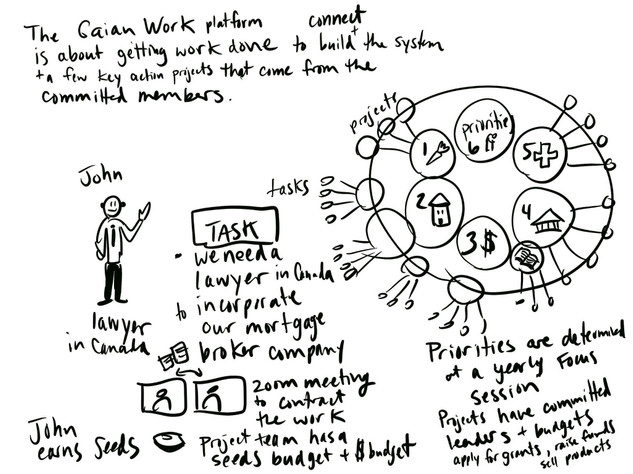 The Gaian Work platform connect +
is about getting work done to build the system
+ a few key action projects that come from the
committed members.
projects
priorities
6
1
5
2
4
3 $
tasks
John
lawyer
in Canada
TASK
- we need a
lawyer in Canada
to incorpirate
our mortgage
broker company
zoom meeting
to contract
the work
John
earns seeds
Project team has a
seeds budget + $ budget
Priorities are determined
at a yearly Focus
session
Projects have committed
leaders + budgets
apply for grants, raise funds
sell products